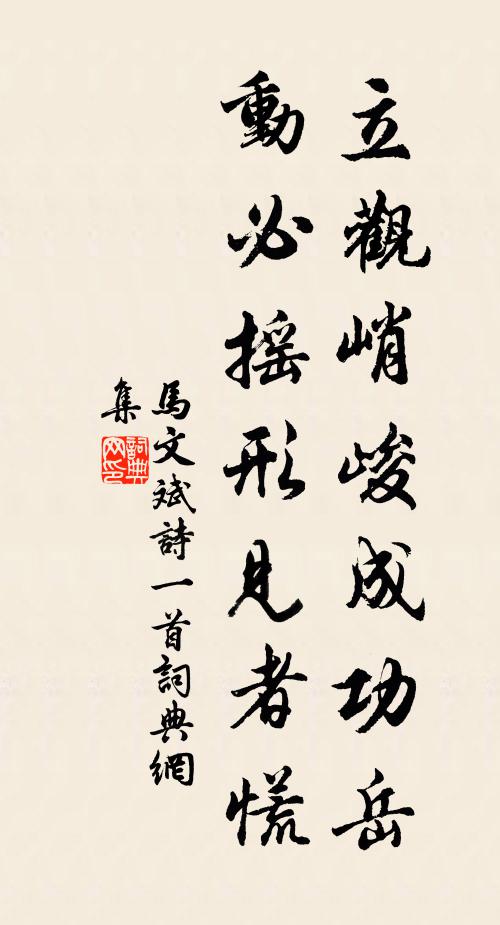 立觀峭峻成功岳
動必摇形見者慌
馬文斌詩一首詞典網
集
詞典网印